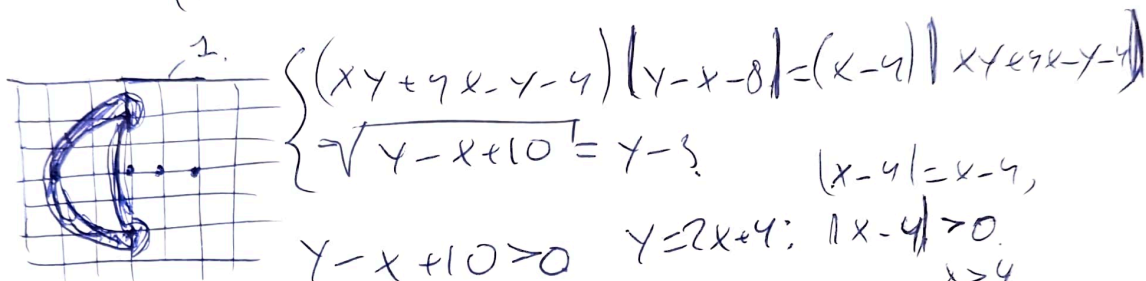 1.
{(xy+4x-y-4)|y-x-8|=(x-4)|xy+4x-y-4|
√(y-x+10)=y-
|x-4|=x-4,
y-x+10>0 y=2x+4: |x-4|>0.
x>4